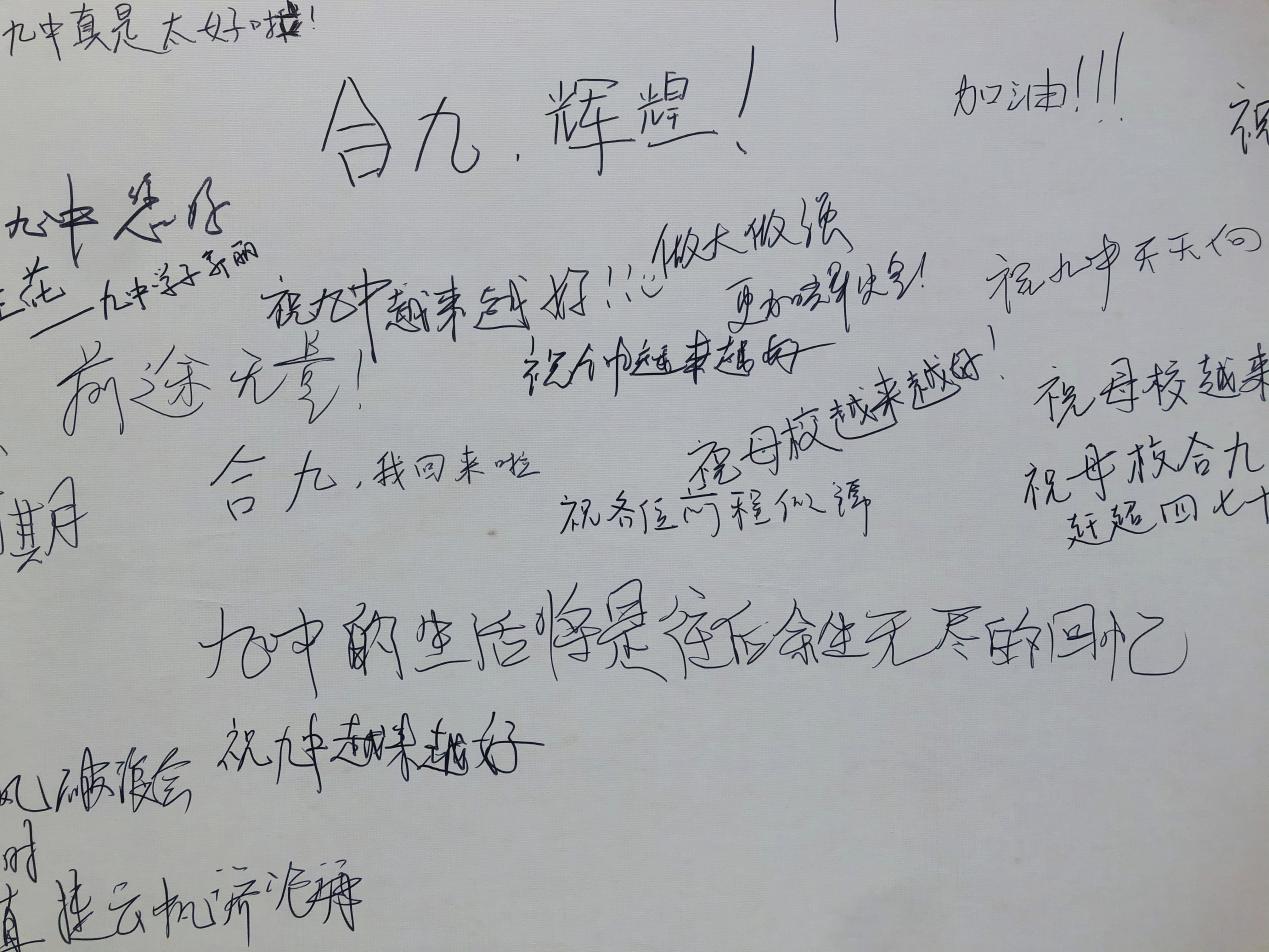 九中真是太好啦!
合九,辉煌!
加油!!!
祝
九中您好
——九中学子
祝九中越来越好!!!
做大做强
更加辉煌!
祝九中天天向
前途无量!
祝九中越来越好
祝母校越来越好!
祝母校越来
合九,我回来啦
祝母校合九
赶超四七十
期
祝各位前程似锦
九中的生活将是往后余生无尽的回忆
祝九中越来越好
风破浪会
时
直挂云帆济沧海